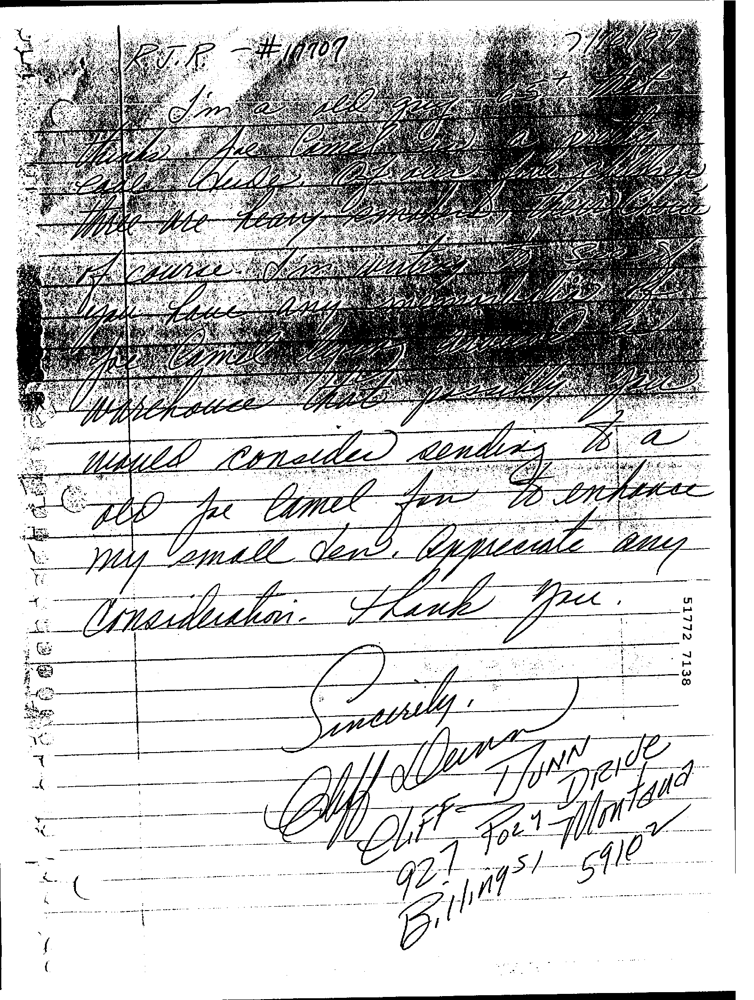 RJR - #
I'm a old guy 65+ that
thinks Joe Camel is a
dude. Of our four children
three are heavy smokers, their choice
of course. I'm writing to see if
you have any
Joe Camel lying around the
warehouse that possibly you
would consider sending to a
old Joe Camel fan to enhance
my small den. Appreciate any
consideration. Thank you.
Sincerely,
Cliff Dunn
CLIFF DUNN
927 Poly DRIVE
Billings, Montana
59102
51772 7138